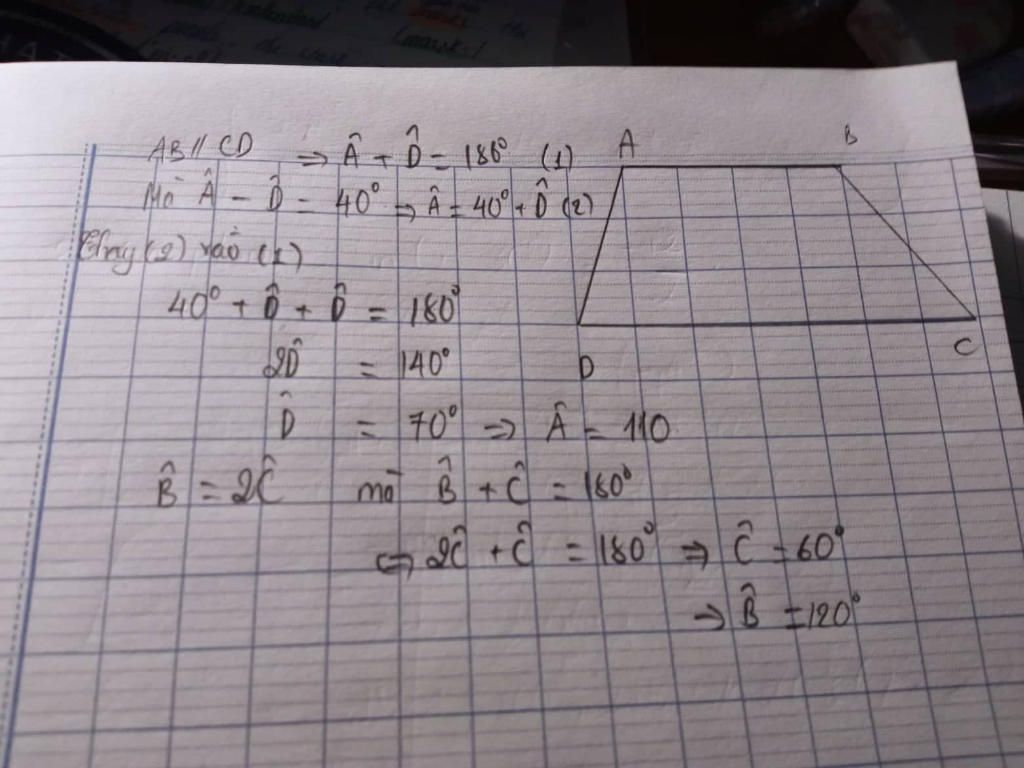 AB // CD ⇒ Â + D̂ = 180° (1)
Mà Â - D̂ = 40° ⇒ Â = 40° + D̂ (2)
Thay (2) vào (1)
40° + D̂ + D̂ = 180°
2D̂ = 140°
D̂ = 70° ⇒ Â = 110
B̂ = 2Ĉ mà B̂ + Ĉ = 180°
⇔ 2Ĉ + Ĉ = 180° ⇒ Ĉ = 60°
⇒ B̂ = 120°
A
B
D
C